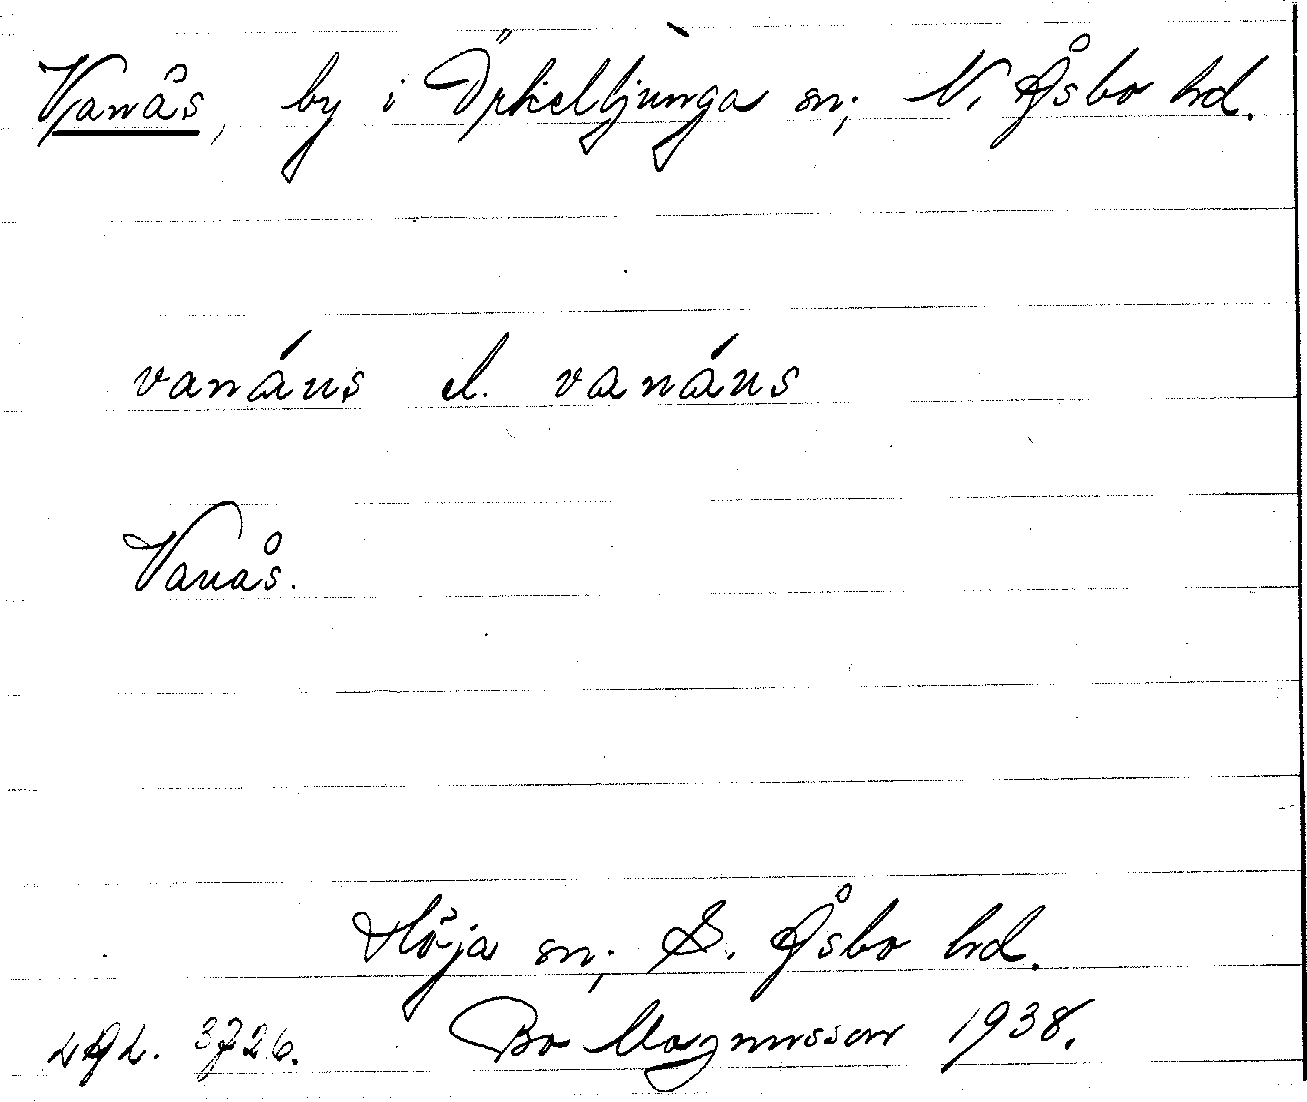 Vanås, by i Örkelljunga sn; N. Åsbo hd.
vanáus el. vanáus
Vanås.
Höja sn; S. Åsbo hd.
LAL. 3726. Bo Magnusson 1938.